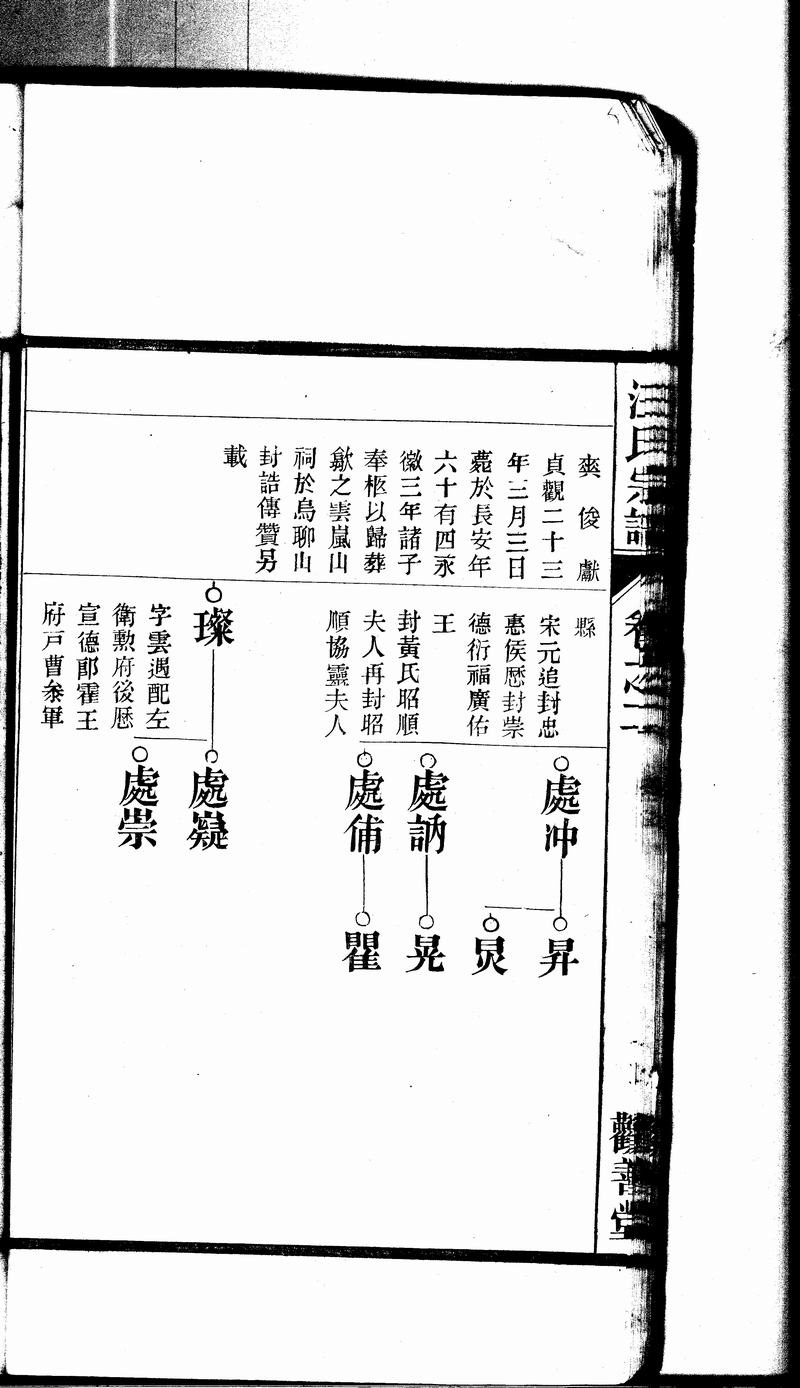 汪氏宗譜
卷之二
觀善堂
爽俊獻
貞觀二十三
年三月三日
薨於長安年
六十有四永
徽三年諸子
奉柩以歸葬
歙之雲嵐山
祠於烏聊山
封誥傳贊另
載
縣
宋元追封忠
惠侯歷封崇
德衍福廣佑
王
封黃氏昭順
夫人再封昭
順協靈夫人
璨
字雲遇配左
衛勳府後歷
宣德郎霍王
府戶曹叅軍
處冲
處訥
處俌
處嶷
處崇
昇
炅
晃
瞿